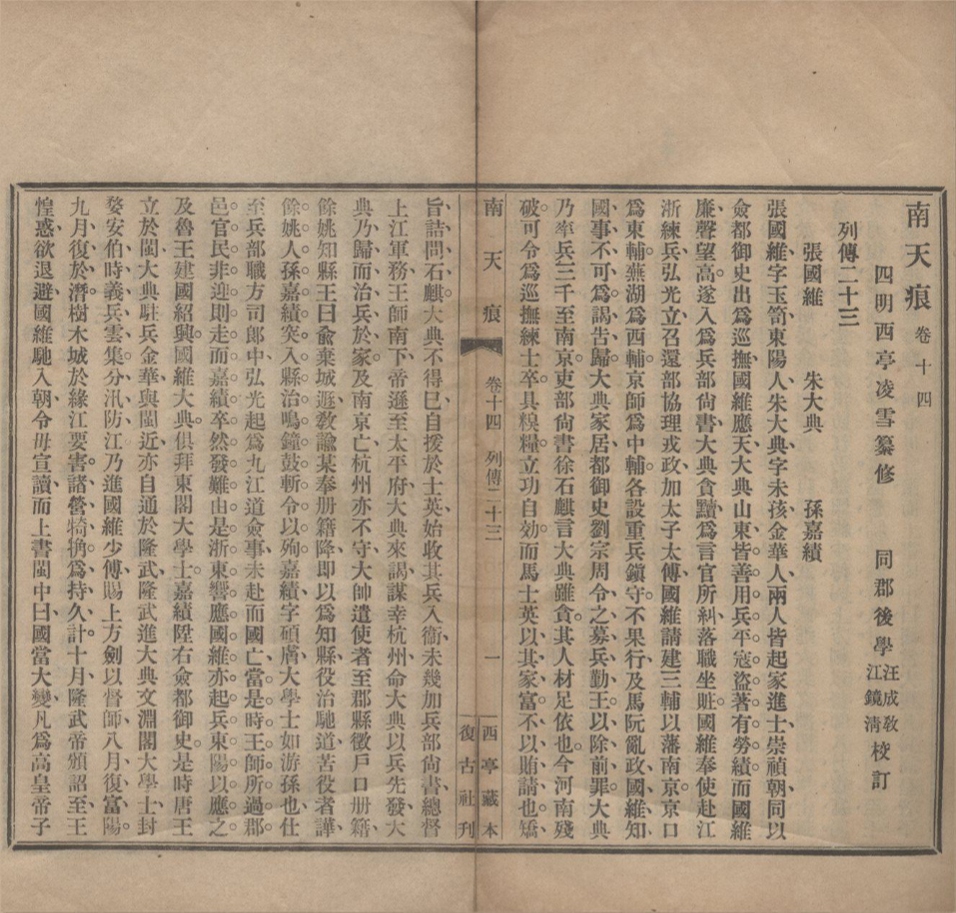 南天痕 卷十四
四明西亭凌雪纂修 同郡後學 汪成教 江鏡清 校訂
列傳二十三
張國維 朱大典 孫嘉績
張國維、字玉笥、東陽人、朱大典、字未孩、金華人、兩人皆起家進士、崇禎朝、同以
僉都御史出爲巡撫、國維應天、大典山東、皆善用兵、平寇盜、著有勞績、而國維
廉、聲望高。遂入爲兵部尙書、大典貪黷、爲言官所糾、落職坐賍。國維奉使赴江
浙練兵、弘光立、召還部、協理戎政、加太子太傅、國維請建三輔、以藩南京、京口
爲東輔。蕪湖爲西輔。京師爲中輔。各設重兵鎭守。不果行、及馬阮亂政、國維知
國事不可爲、謁吿歸、大典家居、都御史劉宗周、令之募兵勤王、以除前罪、大典
乃率兵三千至南京。吏部尙書徐石麒言大典雖貪。其人材足依也。今河南殘
破。可令爲巡撫練士卒。具糗糧。立功自効。而馬士英以其家富不以賄請也、矯
南天痕 卷十四 列傳二十三 一 西亭藏本 復古社刊
旨詰問石麒、大典不得已、自援於士英、始收其兵入衞、未幾、加兵部尙書、總督
上江軍務、王師南下、帝遜至太平府、大典來謁、謀幸杭州、命大典以兵先發、大
典乃歸而治兵於家。及南京亡、杭州亦不守、大帥遣使者至郡縣徵戶口册籍、
餘姚知縣王曰兪棄城遯、敎諭某奉册籍降、卽以爲知縣、役治馳道、苦役者譁、
餘姚人孫嘉績突入縣治、鳴鐘鼓、斬令以殉、嘉績、字碩膚、大學士如游孫也、仕
至兵部職方司郎中、弘光起爲九江道僉事、未赴而國亡、當是時、王師所過郡
邑、官民非迎則走、而嘉績卒然發難、由是浙東響應、國維亦起兵東陽以應之。
及魯王建國紹興、國維大典俱拜東閣大學士、嘉績陞右僉都御史。是時唐王
立於閩、大典駐兵金華、與閩近、亦自通於隆武、隆武進大典文淵閣大學士、封
婺安伯、時義兵雲集、分汛防江、乃進國維少傅、賜上方劍以督師、八月、復富陽。
九月、復於潛、樹木城於緣江要害。諸營犄角。爲持久計。十月、隆武帝頒詔至、王
惶惑欲退避、國維馳入朝、令毋宣讀、而上書閩中曰、國當大變、凡爲高皇帝子